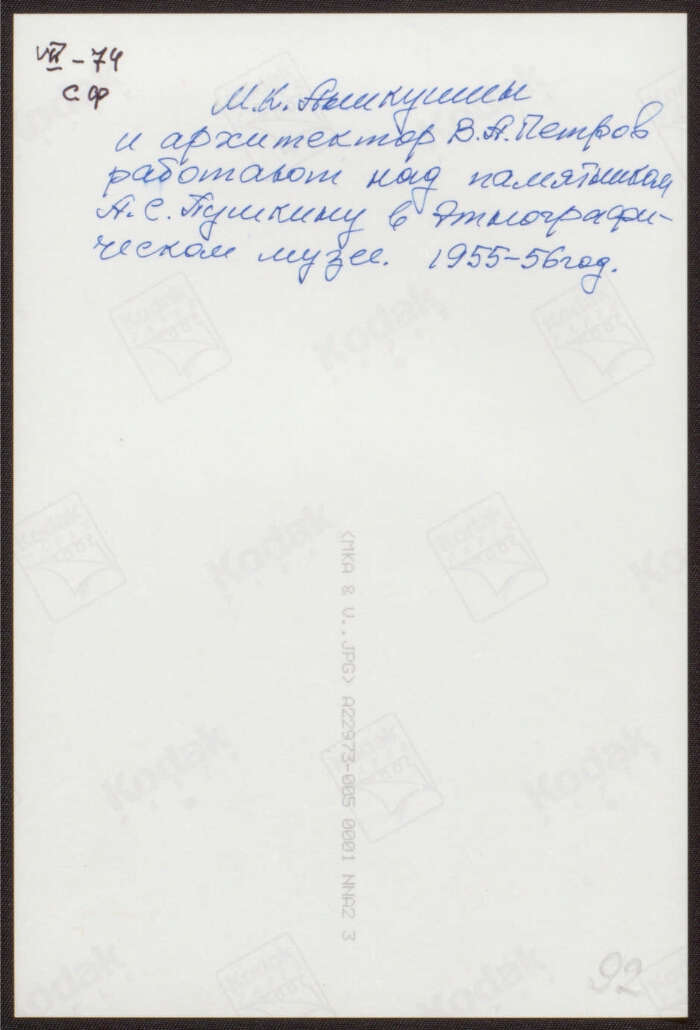 VII-74
С.Ф
М.К. Аникушин
и архитектор В.А. Петров
работают над памятником
А.С. Пушкину в Этнографи-
ческом музее. 1955-56 год.
<MKA & V..JPG> A22973-005 0001 NNA2 3
92
Kodak